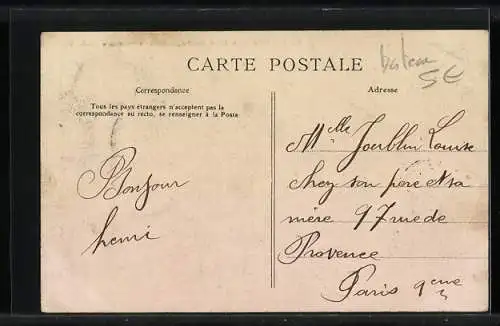 CARTE POSTALE
bateau
5€
Correspondance
Tous les pays étrangers n'acceptent pas la
correspondance au recto, se renseigner à la Poste
Adresse
Bonjour
henri
Melle Louise
chez son père et sa
mère 97 rue de
Provence
Paris 9eme